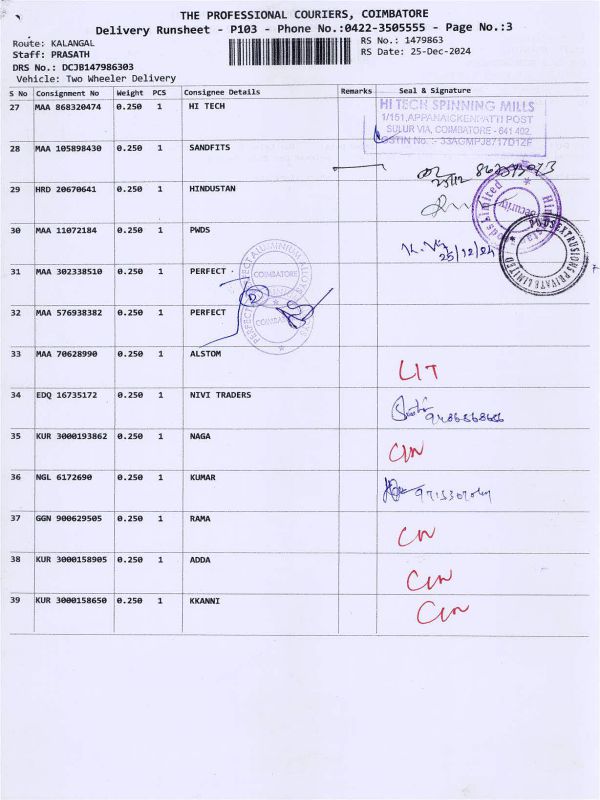 THE PROFESSIONAL COURIERS, COIMBATORE
Delivery Runsheet - P103 - Phone No.:0422-3505555 - Page No.:3
Route: KALANGAL
RS No.: 1479863
Staff: PRASATH
RS Date: 25-Dec-2024
DRS No.: DCJB147986303
Vehicle: Two Wheeler Delivery
S No Consignment No Weight PCS Consignee Details Remarks Seal & Signature
27 MAA 868320474 0.250 1 HI TECH
HI TECH SPINNING MILLS
1/151,APPANAICKENPATTI POST
SULUR VIA, COIMBATORE - 641 402.
GSTIN No. :- 33AGMPJ8717D1ZF
28 MAA 105898430 0.250 1 SANDFITS
25/12
29 HRD 20670641 0.250 1 HINDUSTAN
Security
30 MAA 11072184 0.250 1 PWDS
25/12/24
EXTRUSIONS PRIVATE LIMITED
31 MAA 302338510 0.250 1 PERFECT
PERFECT ALUMINIUM ALLOYS
COIMBATORE
32 MAA 576938382 0.250 1 PERFECT
33 MAA 70628990 0.250 1 ALSTOM
LIT
34 EDQ 16735172 0.250 1 NIVI TRADERS
35 KUR 3000193862 0.250 1 NAGA
36 NGL 6172690 0.250 1 KUMAR
37 GGN 900629505 0.250 1 RAMA
38 KUR 3000158905 0.250 1 ADDA
39 KUR 3000158650 0.250 1 KKANNI